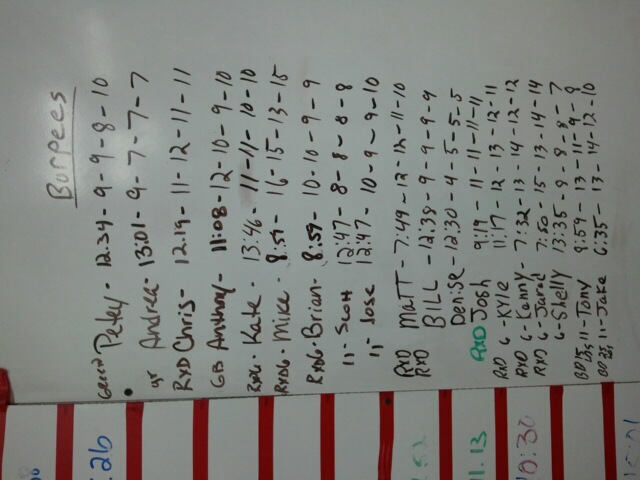 Burpees
Green Patey - 12:34 - 9 - 9 - 8 - 10
yr Andrea - 13:01 - 9 - 7 - 7 - 7
RXD Chris - 12:19 - 11 - 12 - 11 - 11
GB Anthony - 11:08 - 12 - 10 - 9 - 10
RXD6 - Kate - 13:46 - 11 - 11 - 10 - 10
RXD6 - Mike - 8:59 - 16 - 15 - 13 - 15
RXD6 - Brian - 8:59 - 10 - 10 - 9 - 9
11 - Scott 12:47 - 8 - 8 - 8 - 8
11 - Jose 12:47 - 10 - 9 - 9 - 10
RXD Matt - 7:49 - 12 - 12 - 11 - 10
RXD BILL - 12:38 - 9 - 9 - 9 - 9
Denise - 12:30 - 4 - 5 - 5 - 5
RXD Josh 9:19 - 11 - 11 - 11 - 11
RXD 6 - Kyle 11:17 - 12 - 13 - 12 - 11
RXD 6 - Kenny - 7:32 - 13 - 14 - 12 - 12
RXD 6 - Jarad 7:50 - 15 - 13 - 14 - 14
6 - Shelly 13:35 - 9 - 8 - 8 - 7
11 - Tony 9:59 - 13 - 11 - 9 - 8
11 - Jake 6:35 - 13 - 14 - 12 - 10
:26
:52
11.13
10:30